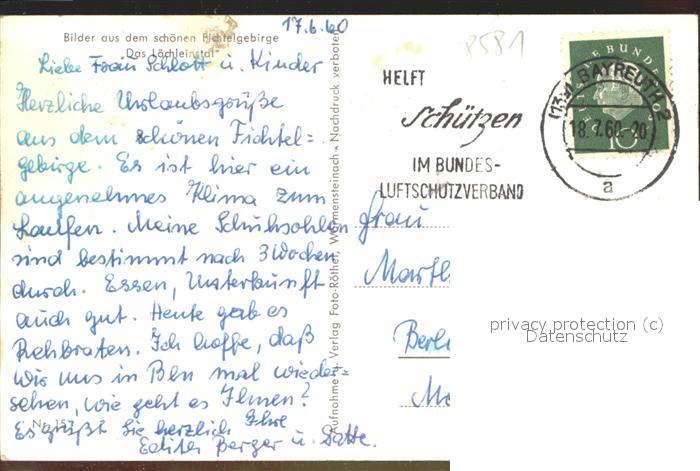 17.6.60
Bilder aus dem schönen Fichtelgebirge
"Das Löchleinstal"
Liebe Frau Schlott u. Kinder
Herzliche Urlaubsgrüße
aus dem schönen Fichtel=
gebirge. Es ist hier ein
angenehmes Klima zum
Laufen. Meine Schuhsohlen
sind bestimmt nach 3 Wochen
durch. Essen, Unterkunft
auch gut. Heute gab es
Rehbraten. Ich hoffe, daß
wir uns in Bln mal wieder=
sehen, wie geht es Ihnen?
Nr. 157
Es grüßt Sie herzlich Ihre
Edith Berger u. Gatte.
Aufnahme u. Verlag Foto-Röther, Warmensteinach - Nachdruck verboten
P581
HELFT
Schützen
IM BUNDES-
LUFTSCHUTZVERBAND
(13a) BAYREUTH 2
18.7.60.-20
a
E BUND
10
Frau
Marth
Berl
privacy protection (c)
Datenschutz